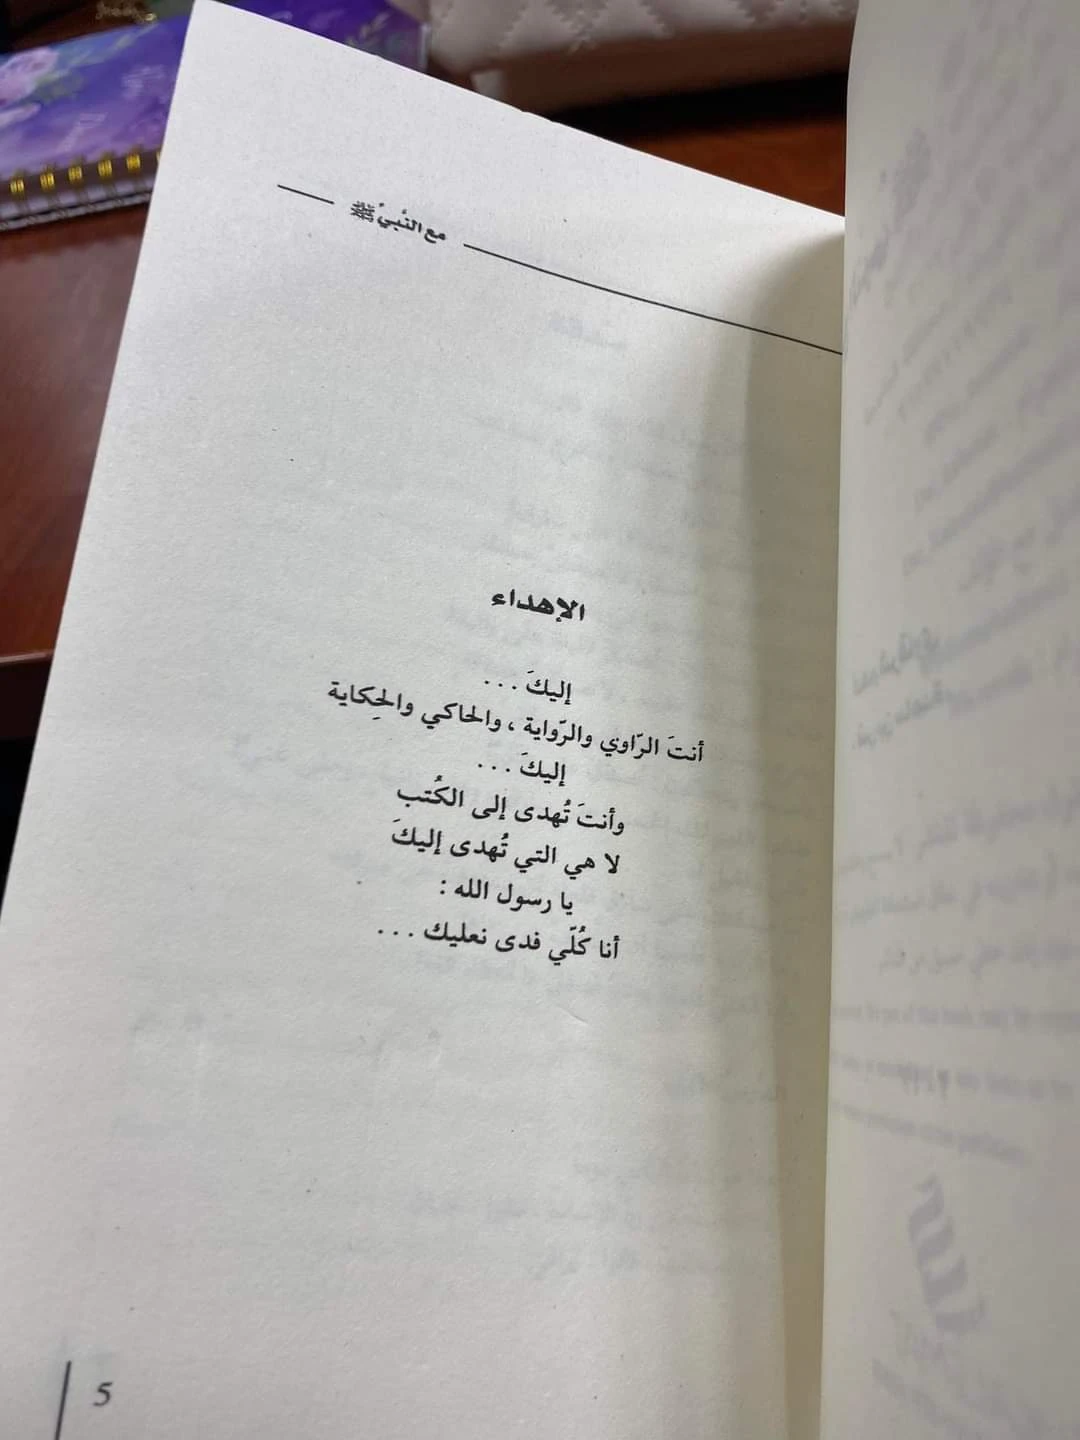 مع النَّبيِّ ﷺ
الإهداء
إليكَ ...
أنتَ الرّاوي والرّواية ، والحاكي والحِكاية
إليكَ ...
وأنتَ تُهدى إلى الكُتب
لا هي التي تُهدى إليكَ
يا رسول الله :
أنا كُلّي فدى نعليك ...
5